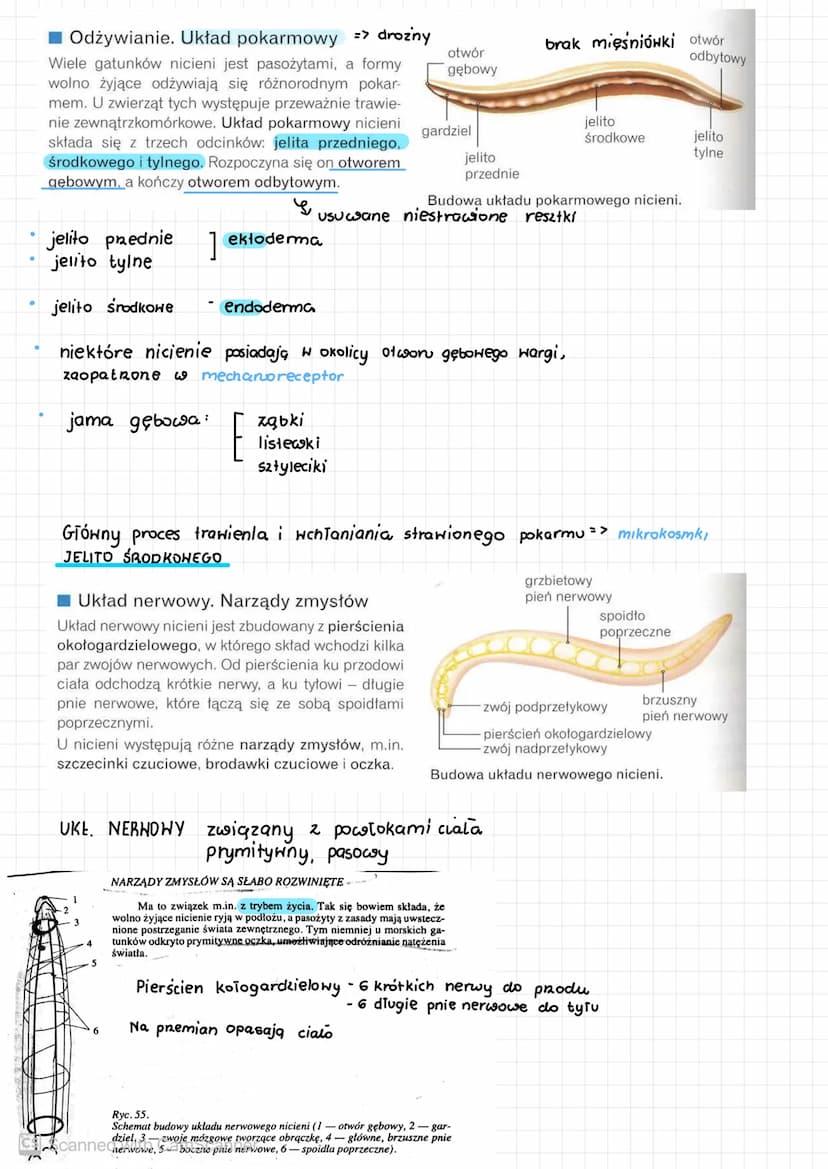 ■ Odżywianie. Układ pokarmowy => drożny
Wiele gatunków nicieni jest pasożytami, a formy
wolno żyjące odżywiają się różnorodnym pokar-
mem. U zwierząt tych występuje przeważnie trawie-
nie zewnątrzkomórkowe. Układ pokarmowy nicieni
składa się z trzech odcinków: jelita przedniego,
środkowego i tylnego. Rozpoczyna się on otworem
gębowym, a kończy otworem odbytowym.
brak mięśniówki
otwór
gębowy
otwór
odbytowy
gardziel
jelito
przednie
jelito
środkowe
jelito
tylne
Budowa układu pokarmowego nicieni.
usuwane niestrawione resztki
• jelito przednie ] ektoderma
• jelito tylne
• jelito środkowe - endoderma
• niektóre nicienie posiadają w okolicy otworu gębowego wargi,
zaopatrzone w mechanoreceptor
• jama gębowa: [ ząbki
listewki
sztyleciki
Główny proces trawienia i wchłaniania strawionego pokarmu => mikrokosmki
JELITO ŚRODKOWEGO
■ Układ nerwowy. Narządy zmysłów
Układ nerwowy nicieni jest zbudowany z pierścienia
okołogardzielowego, w którego skład wchodzi kilka
par zwojów nerwowych. Od pierścienia ku przodowi
ciała odchodzą krótkie nerwy, a ku tyłowi – długie
pnie nerwowe, które łączą się ze sobą spoidłami
poprzecznymi.
U nicieni występują różne narządy zmysłów, m.in.
szczecinki czuciowe, brodawki czuciowe i oczka.
grzbietowy
pień nerwowy
spoidło
poprzeczne
zwój podprzełykowy
brzuszny
pień nerwowy
pierścień okołogardzielowy
zwój nadprzełykowy
Budowa układu nerwowego nicieni.
UKŁ. NERWOWY związany z powłokami ciała
prymitywny, pasowy
NARZĄDY ZMYSŁÓW SĄ SŁABO ROZWINIĘTE
Ma to związek m.in. z trybem życia. Tak się bowiem składa, że
wolno żyjące nicienie ryją w podłożu, a pasożyty z zasady mają uwstecz-
nione postrzeganie świata zewnętrznego. Tym niemniej u morskich ga-
tunków odkryto prymitywne oczka, umożliwiające odróżnianie natężenia
światła.
1
2
3
4
5
6
Pierścien kołogardzielowy - 6 krótkich nerwy do przodu
- 6 długie pnie nerwowe do tyłu
Na przemian opasają ciało
Ryc. 55.
Schemat budowy układu nerwowego nicieni (1 — otwór gębowy, 2 — gar-
dziel, 3 — zwoje mózgowe tworzące obrączkę, 4 — główne, brzuszne pnie
nerwowe, 5 — boczne pnie nerwowe, 6 — spoidła poprzeczne).
CS Scanned with CamScanner